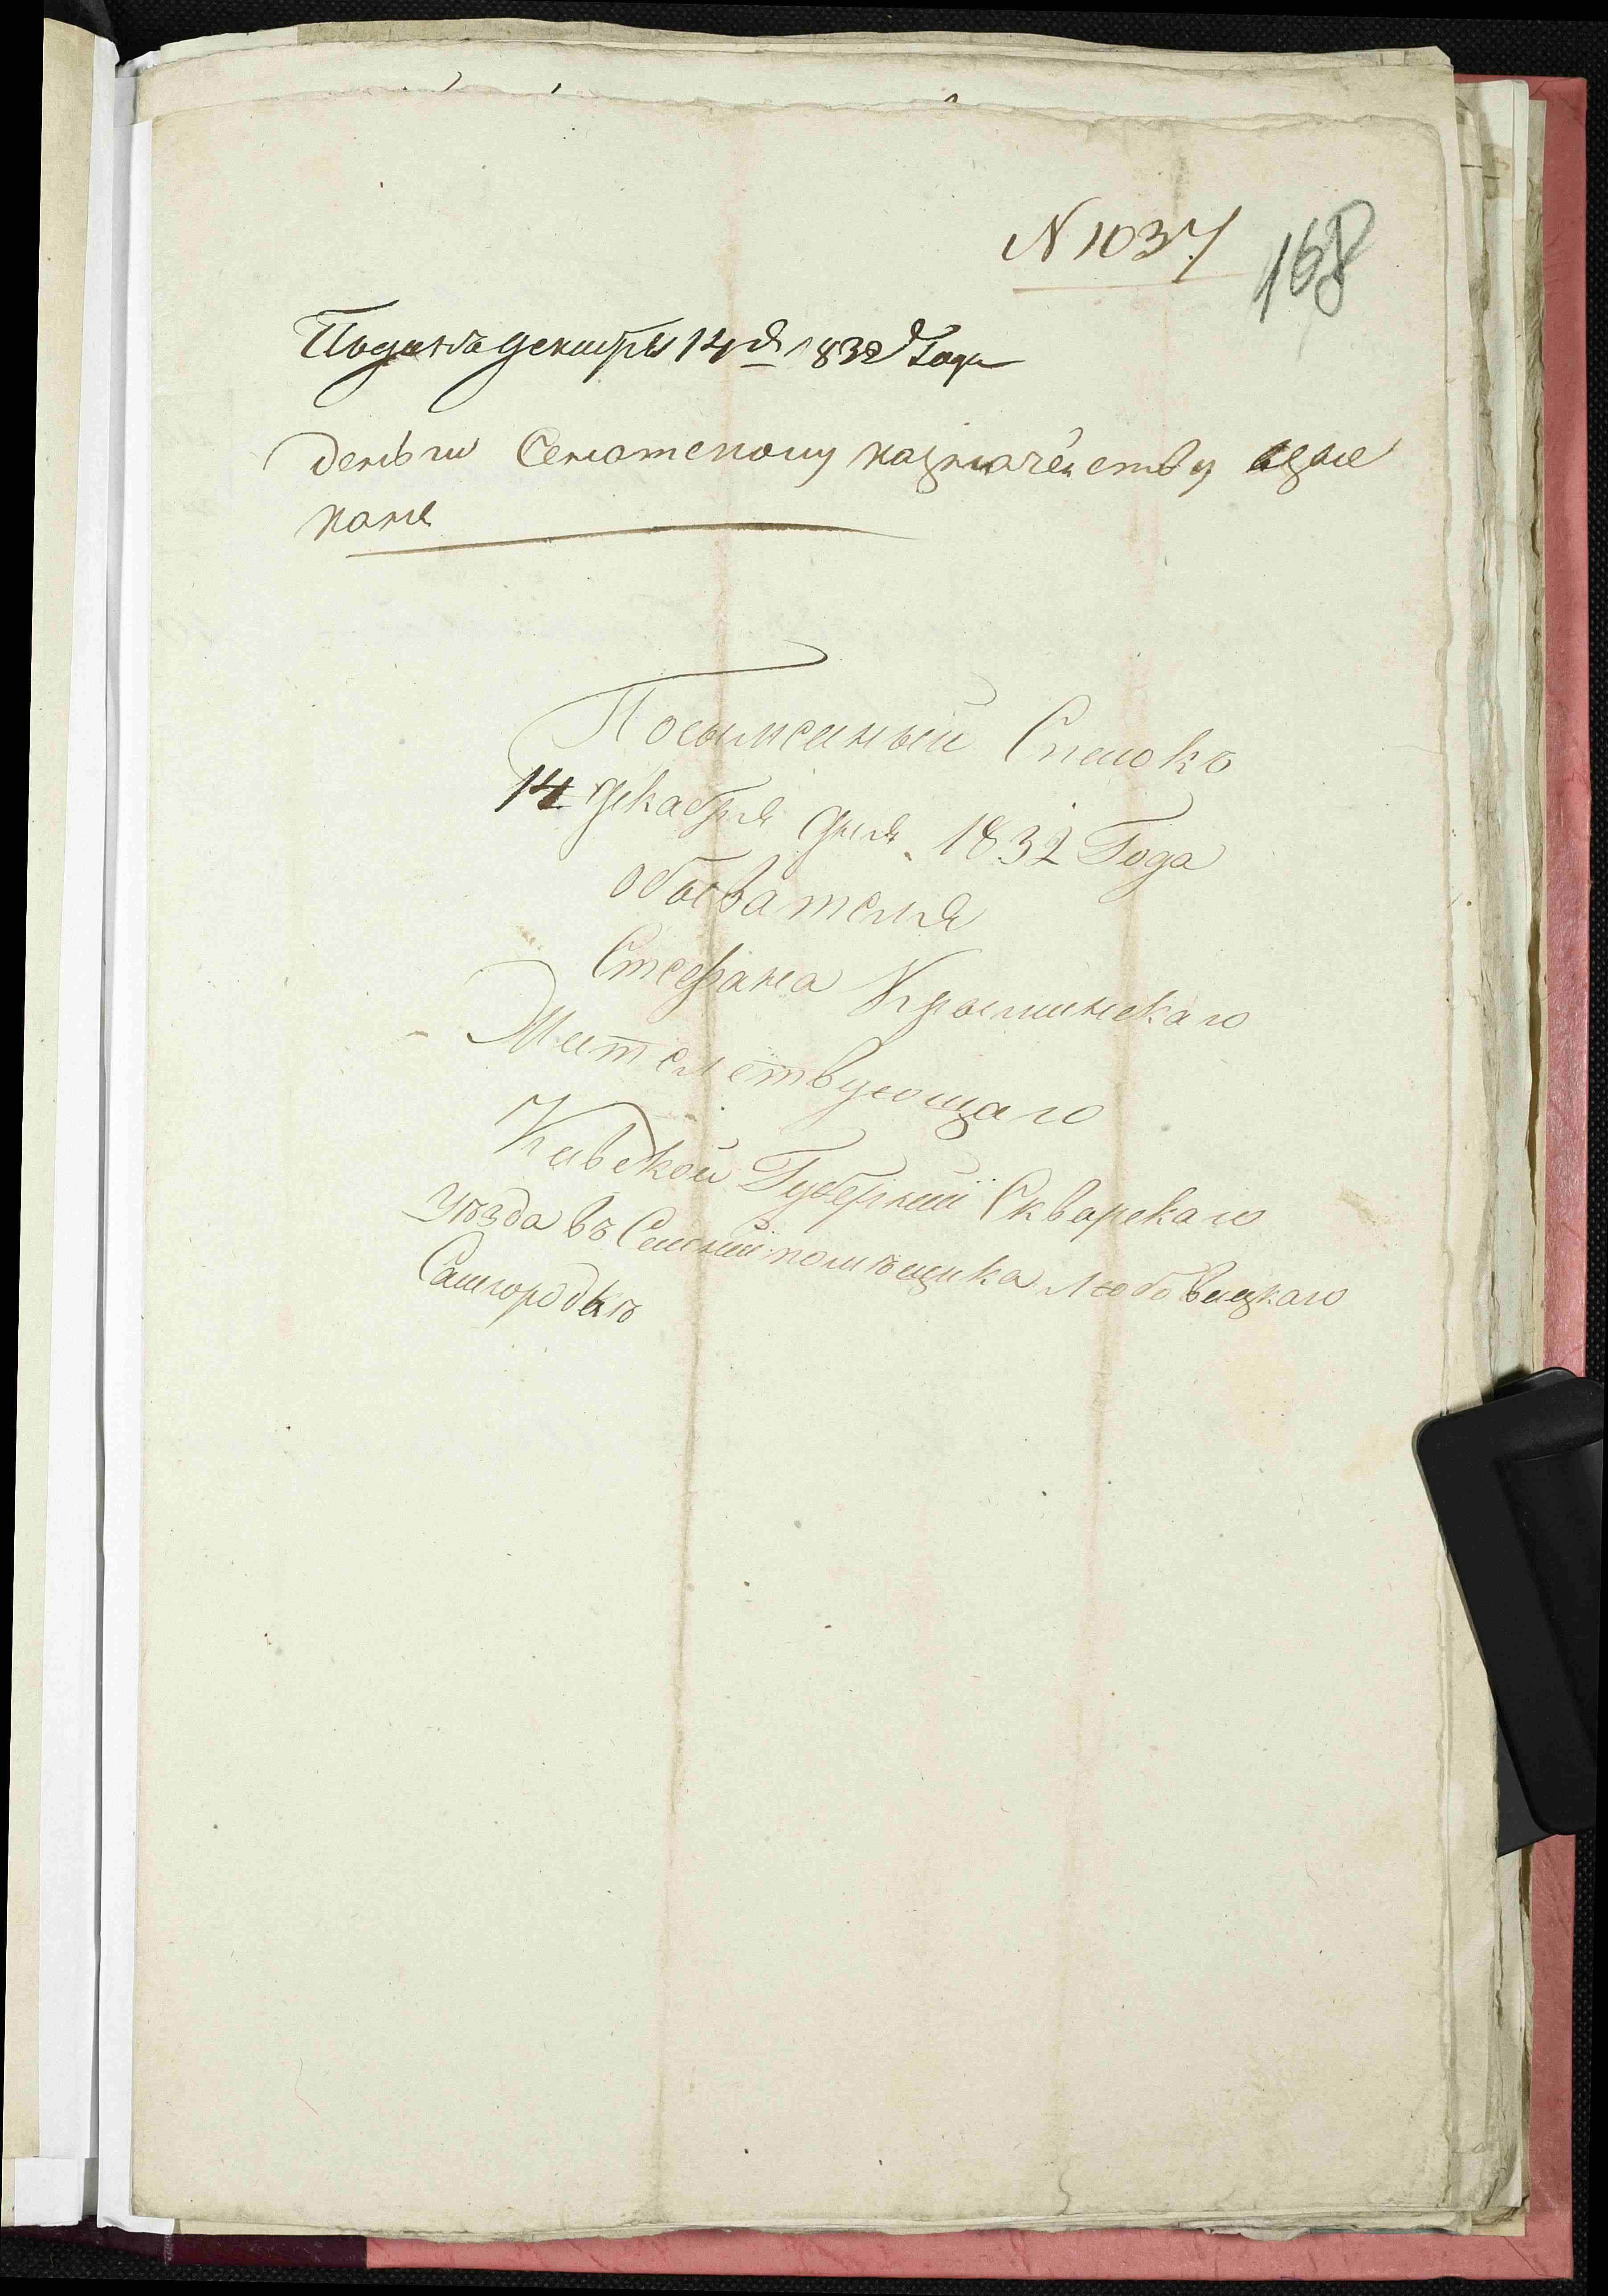 N 1037
168
Поданъ декабря 14 д 1832 Года
деньги Сенатскому казначейству
Посымейный Списокъ
14 декабря дня 1832 Года
обывателя
Стефана Крыминскаго
Жительствующаго
Киевской Губернии Скварскаго
уѣзда въ Селении помѣщика Любовицкаго
Самгородкѣ